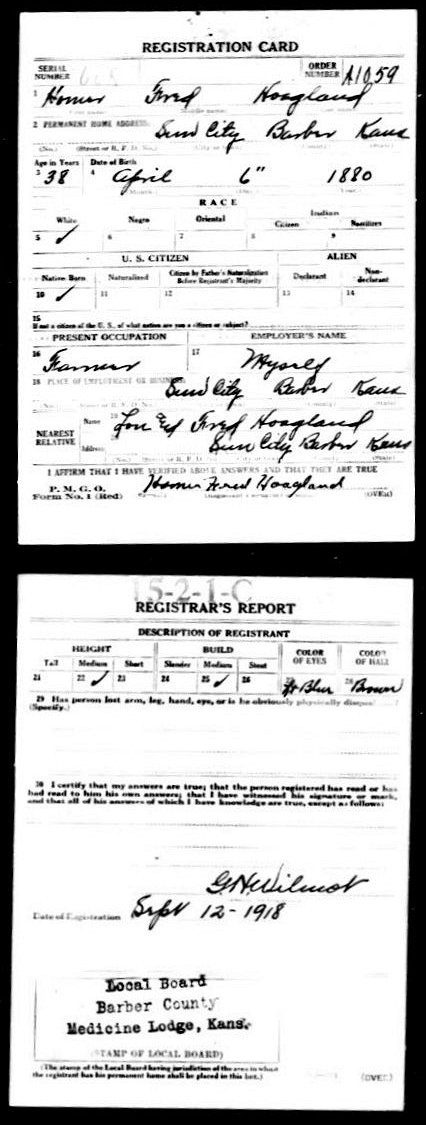 REGISTRATION CARD
SERIAL NUMBER
ORDER NUMBER A1059
1 Homer Fred Hoagland
2 PERMANENT HOME ADDRESS: Sun City Barber Kans
(No.) (Street or R. F. D. No.) (City or (County) (State)
Age in Years Date of Birth
3 38 4 April 6" 1880
(Month.) (Day.) (Year.)
RACE
White Negro Oriental Indian
Citizen Noncitizen
5 ✓ 6 7 8 9
U. S. CITIZEN ALIEN
Native Born Naturalized Citizen by Father's Naturalization Before Registrant's Majority Declarant Non-declarant
10 ✓ 11 12 13 14
15
If not a citizen of the U. S., of what nation are you a citizen or subject?
PRESENT OCCUPATION EMPLOYER'S NAME
16 Farmer 17 Myself
18 PLACE OF EMPLOYMENT OR BUSINESS: Sun City Barber Kans
(No.) (Street or R. F. D. No.) (County) (State)
NEAREST RELATIVE
Name 19 Fred Hoagland
Address 20 Sun City Barber Kans
(No.) (State)
I AFFIRM THAT I HAVE VERIFIED ABOVE ANSWERS AND THAT THEY ARE TRUE
P. M. G. O.
Form No. 1 (Red) Homer Fred Hoagland (OVER)
15-2-1-C
REGISTRAR'S REPORT
DESCRIPTION OF REGISTRANT
HEIGHT BUILD COLOR OF EYES COLOR OF HAIR
Tall Medium Short Slender Medium Stout
21 22 ✓ 23 24 25 ✓ 26 27 Lt Blue 28 Brown
29 Has person lost arm, leg, hand, eye, or is he obviously physically disqualified?
(Specify.)
30 I certify that my answers are true; that the person registered has read or has
had read to him his own answers; that I have witnessed his signature or mark,
and that all of his answers of which I have knowledge are true, except as follows:
G H Wilmot
Date of Registration Sept 12-1918
Local Board
Barber County
Medicine Lodge, Kans.
(STAMP OF LOCAL BOARD)
(The stamp of the Local Board having jurisdiction of the area in which
the registrant has his permanent home shall be placed in this box.)
(OVER)